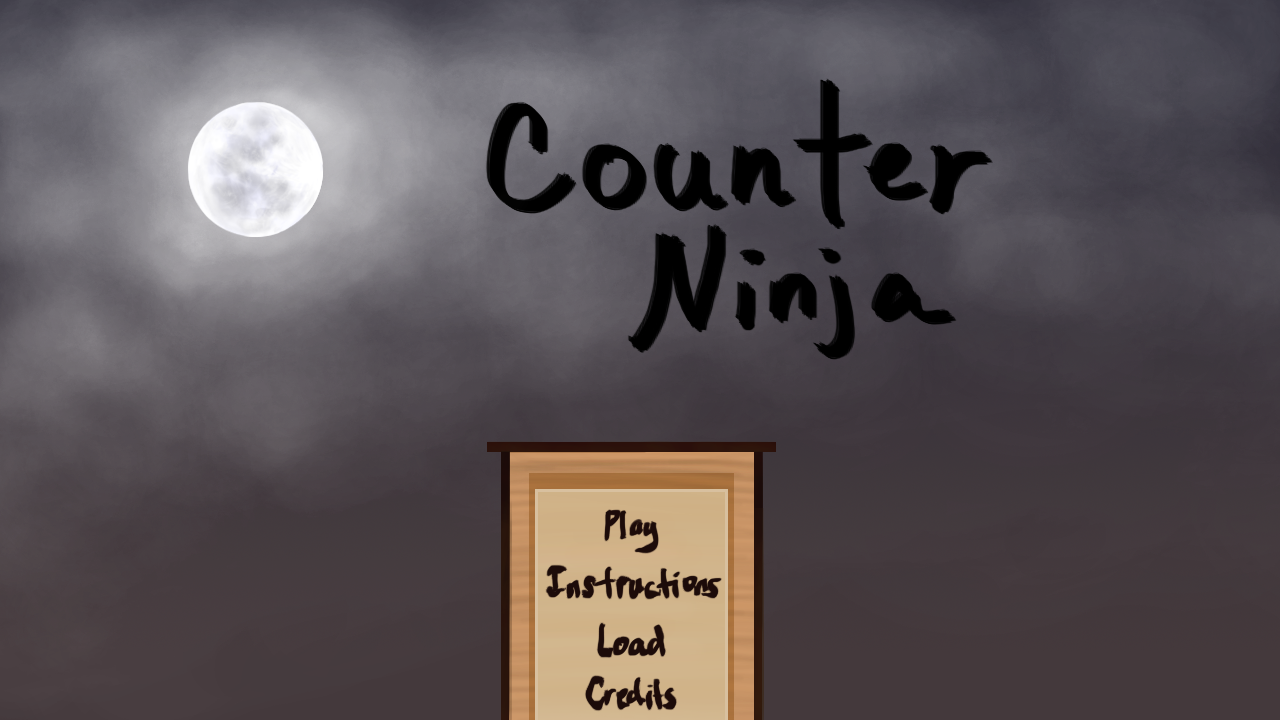 Counter
Ninja
Play
Instructions
Load
Credits